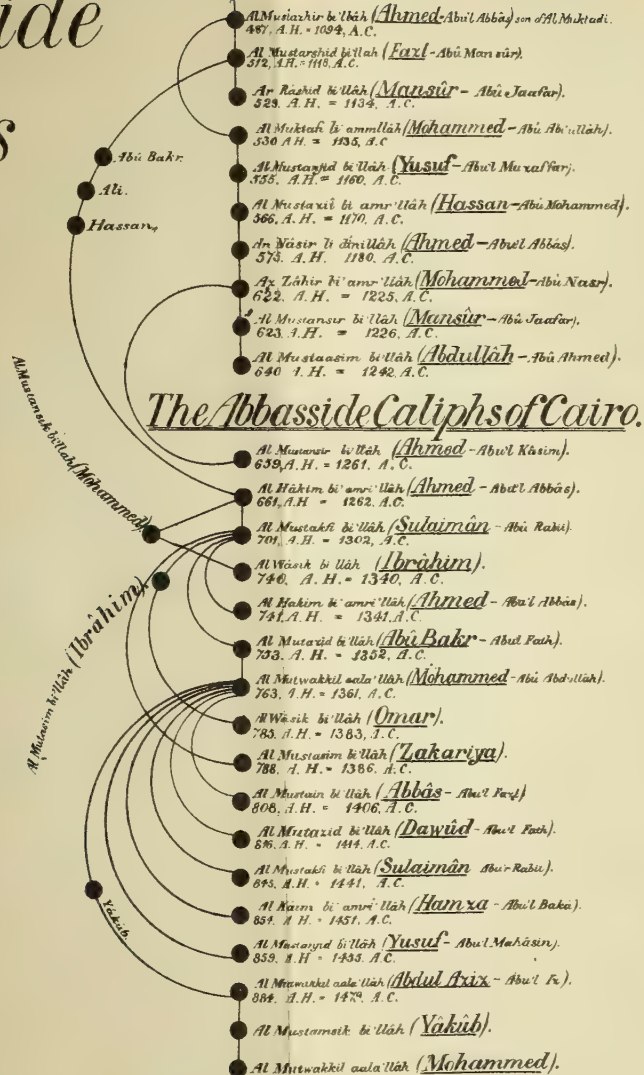 ide
s
Al Mustazhir bi'llâh (Ahmed-Abu'l Abbâs) son d'Al Muktadi.
487, A.H. = 1094, A.C.
Al Mustarshid bi'llah (Fazl-Abû Man sûr).
512, A.H. = 1118, A.C.
Ar Râshid bi'llâh (Mansûr-Abû Jaafar).
529. A.H. = 1134, A.C.
Al Muktafi li ammllâh (Mohammed-Abû Ab'ullâh).
530 A.H. = 1135, A.C
Al Mustanjid bi'llâh (Yusuf-Abu'l Muzaffar).
555. A.H. = 1160, A.C.
Al Mustaziî bi amr'llâh (Hassan-Abû Mohammed).
566, A.H. = 1170, A.C.
An Nâsir li dînillâh (Ahmed-Abu'l Abbâs).
575. A.H. 1180, A.C.
Az Zâhir bi'amr'llâh (Mohammed-Abû Nasr).
622. A.H. = 1225, A.C.
Al Mustansir bi'llâh (Mansûr-Abû Jaafar).
623. A.H. = 1226, A.C.
Al Mustaasim bi'llâh (Abdullâh-Abû Ahmed).
640 A.H. = 1242, A.C.
Abû Bakr.
Ali.
Hassan.
The Abbasside Caliphs of Cairo.
Al Mustansir bi'llâh (Ahmed-Abu'l Kâsim).
659, A.H. = 1261. A.C.
Al Hâkim bi'amri'llâh (Ahmed-Abu'l Abbâs).
661, A.H. = 1262. A.C.
Al Mustamsik bi'llah (Mohammed)
Al Mustakfi bi'llâh (Sulaimân-Abû Rabii).
701, A.H. = 1302, A.C.
Al Wâsik bi'llâh (Ibrâhim).
740, A.H. = 1340, A.C.
Al Mutasim bi'llâh (Ibrâhim).
Al Hakim bi'amri'llâh (Ahmed-Abu'l Abbâs).
741, A.H. = 1341, A.C.
Al Mutazid bi'llâh (Abû Bakr-Abu'l Fath).
753. A.H. = 1352, A.C.
Al Mutwakkil aala'llâh (Mohammed-Abû Abdullâh).
763, A.H. = 1361, A.C.
Al Wâsik bi'llâh (Omar).
785. A.H. = 1383, A.C.
Al Mustasim bi'llâh (Zakariya).
788. A.H. = 1386. A.C.
Al Mustain bi'llâh (Abbâs-Abu'l Fazl)
808, A.H. = 1406, A.C.
Al Mutazid bi'llâh (Dawûd-Abu'l Fath).
816, A.H. = 1414, A.C.
Al Mustakfi bi'llâh (Sulaimân Abu'r Rabii).
845, A.H. = 1441, A.C.
Al Kaim bi'amri'llâh (Hamza-Abu'l Baka).
854. A.H = 1451, A.C.
Al Mustanjid bi'llâh (Yusuf-Abu'l Mahâsin).
859. A.H = 1455, A.C.
Yâkûb.
Al Mutawakkil aala'llâh (Abdul Aziz-Abu'l Iz).
884, A.H. = 1479, A.C.
Al Mustamsik bi'llâh (Yâkûb).
Al Mutwakkil aala'llâh (Mohammed).